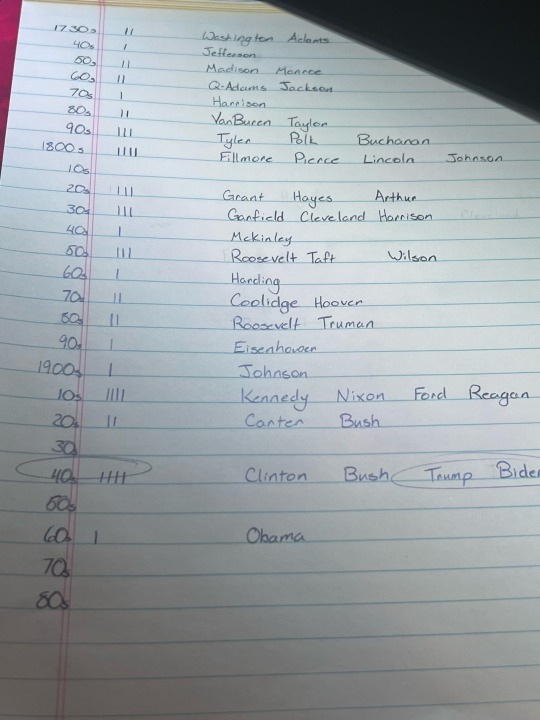 1730s II Washington Adams
40s I Jefferson
50s II Madison Monroe
60s II Q-Adams Jackson
70s I Harrison
80s II VanBuren Taylor
90s III Tyler Polk Buchanan
1800s IIII Fillmore Pierce Lincoln Johnson
10s
20s III Grant Hayes Arthur
30s III Garfield Cleveland Harrison
40s I Mckinley
50s III Roosevelt Taft Wilson
60s I Harding
70s II Coolidge Hoover
80s II Roosevelt Truman
90s I Eisenhower
1900s I Johnson
10s IIII Kennedy Nixon Ford Reagan
20s II Carter Bush
30s
40s IIII Clinton Bush Trump Biden
50s
60s I Obama
70s
80s